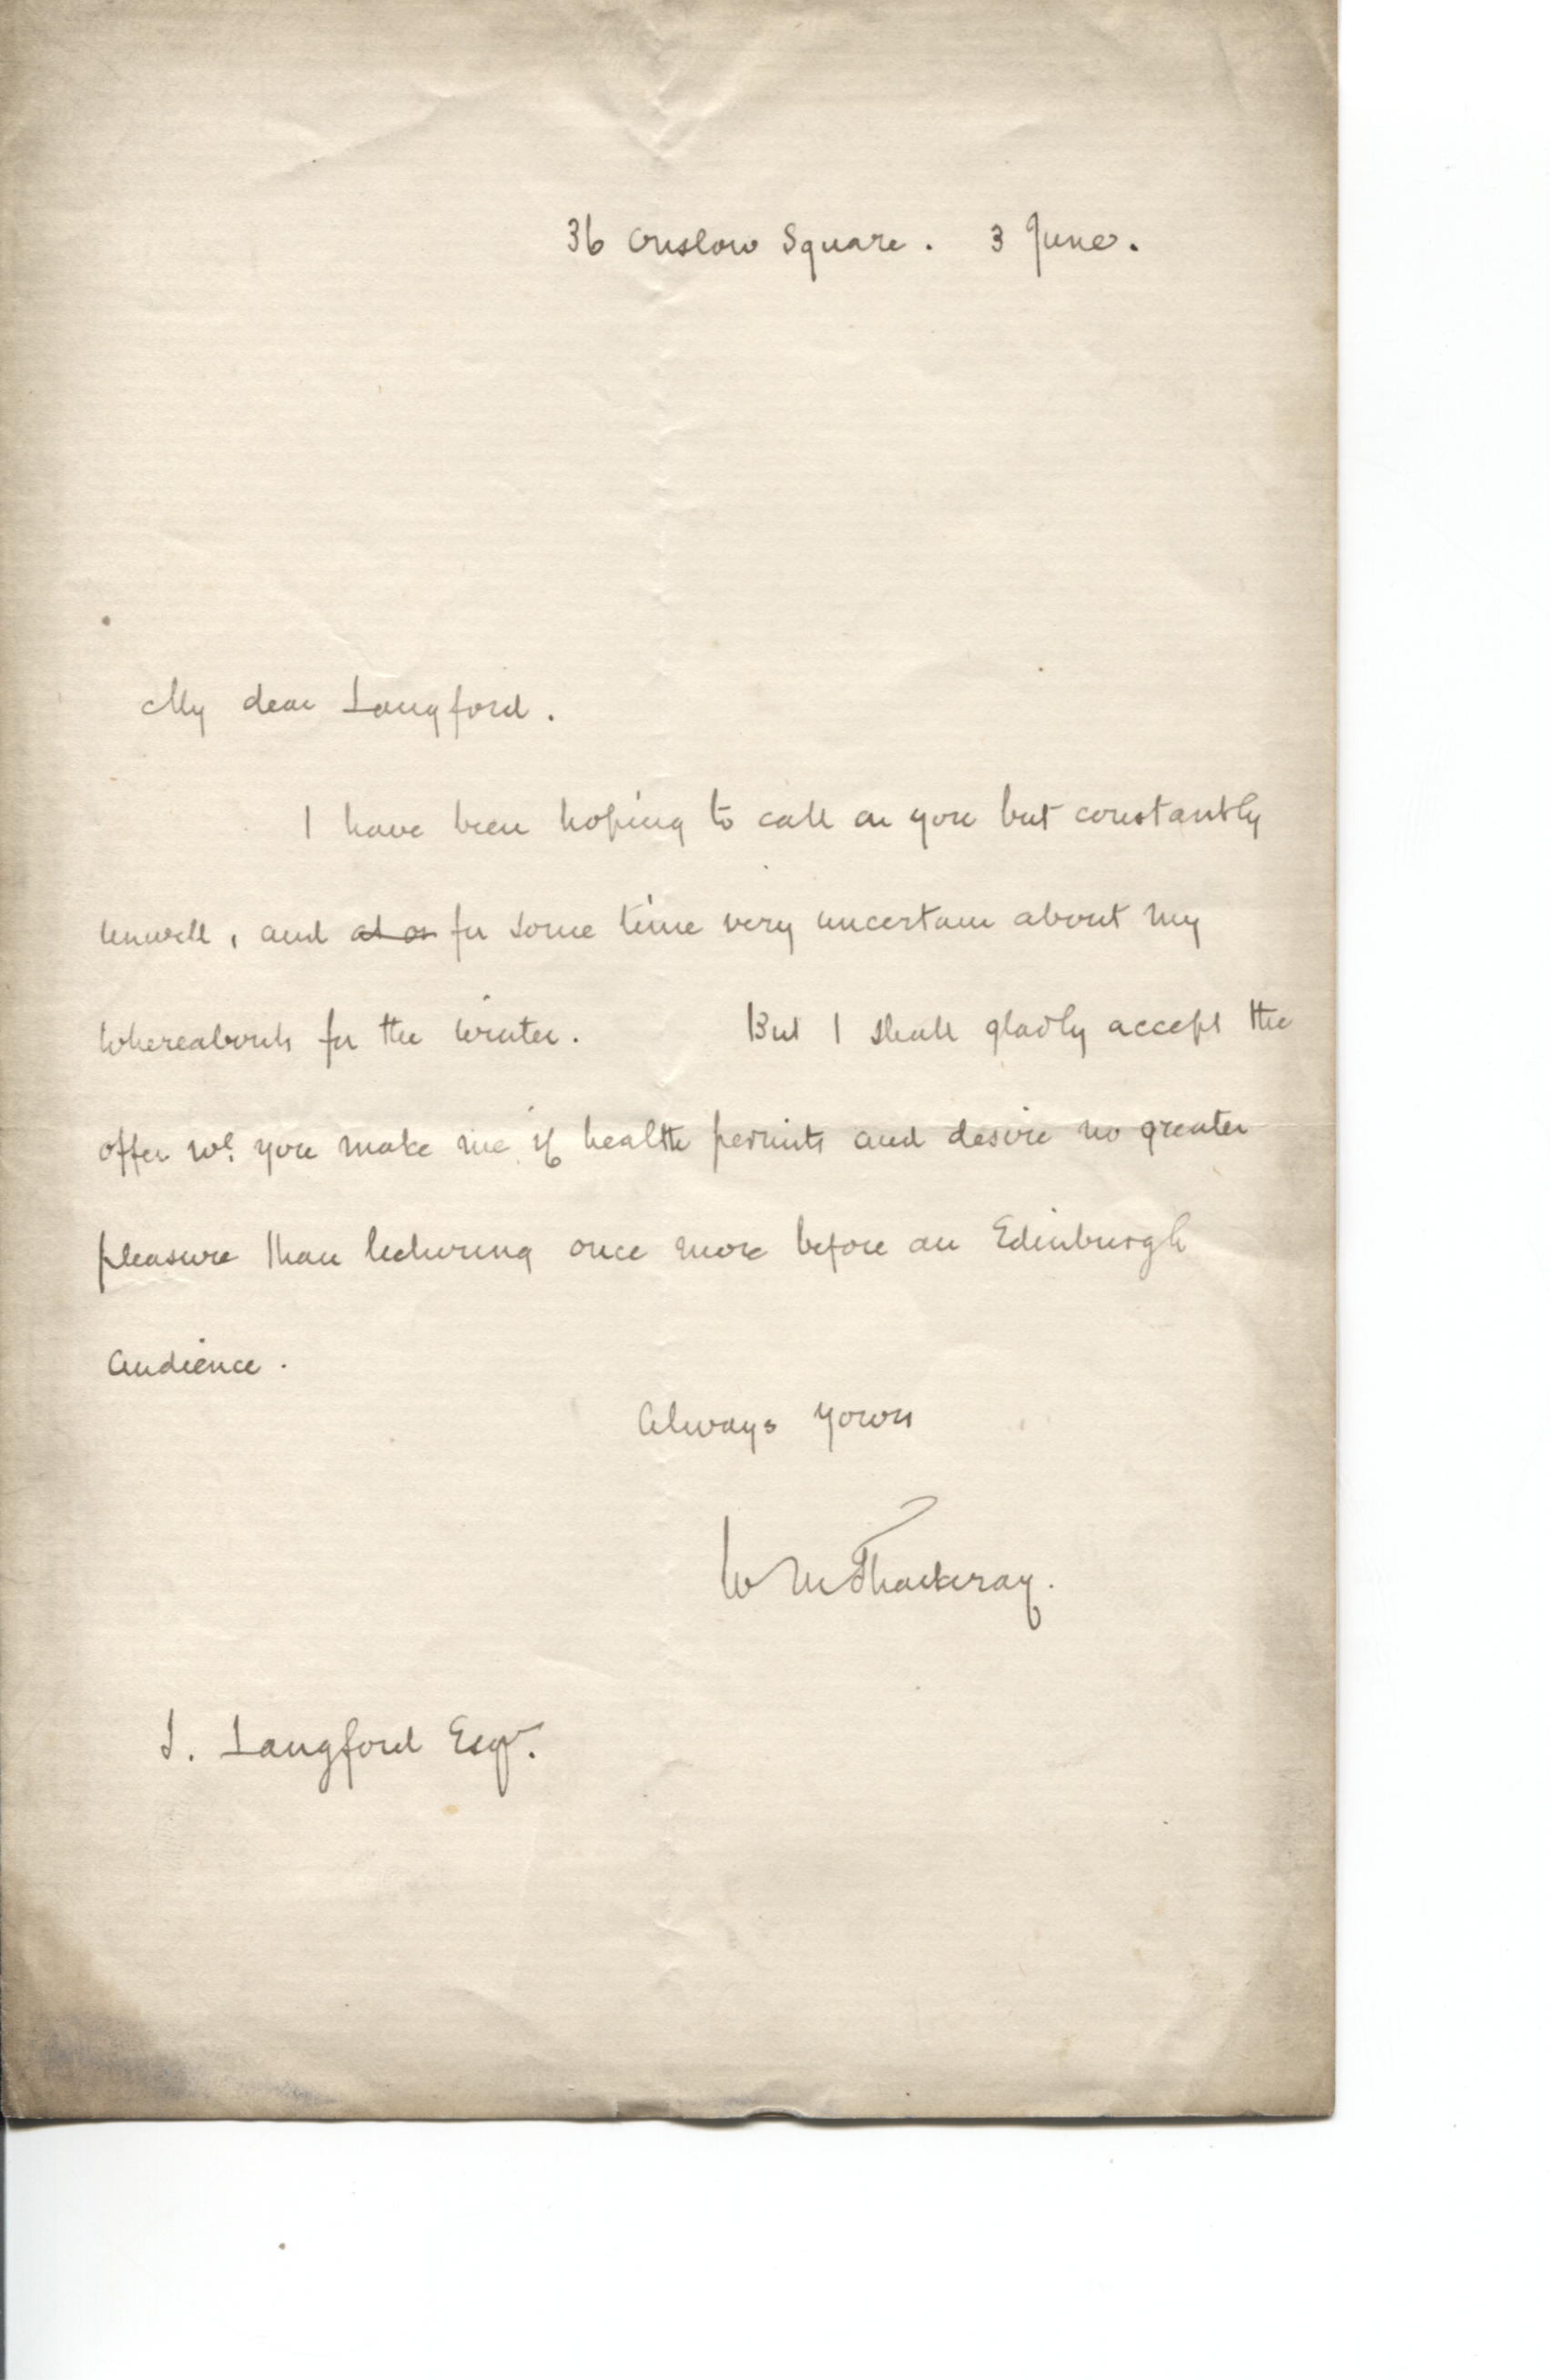 36 Onslow Square. 3 June.
My dear Langford.
I have been hoping to call on you but constantly
unwell, and for some time very uncertain about my
whereabouts for the winter. But I shall gladly accept the
offer wh. you make me if health permits and desire no greater
pleasure than lecturing once more before an Edinburgh
audience.
Always yours
W M Thackeray.
J. Langford Esqr.